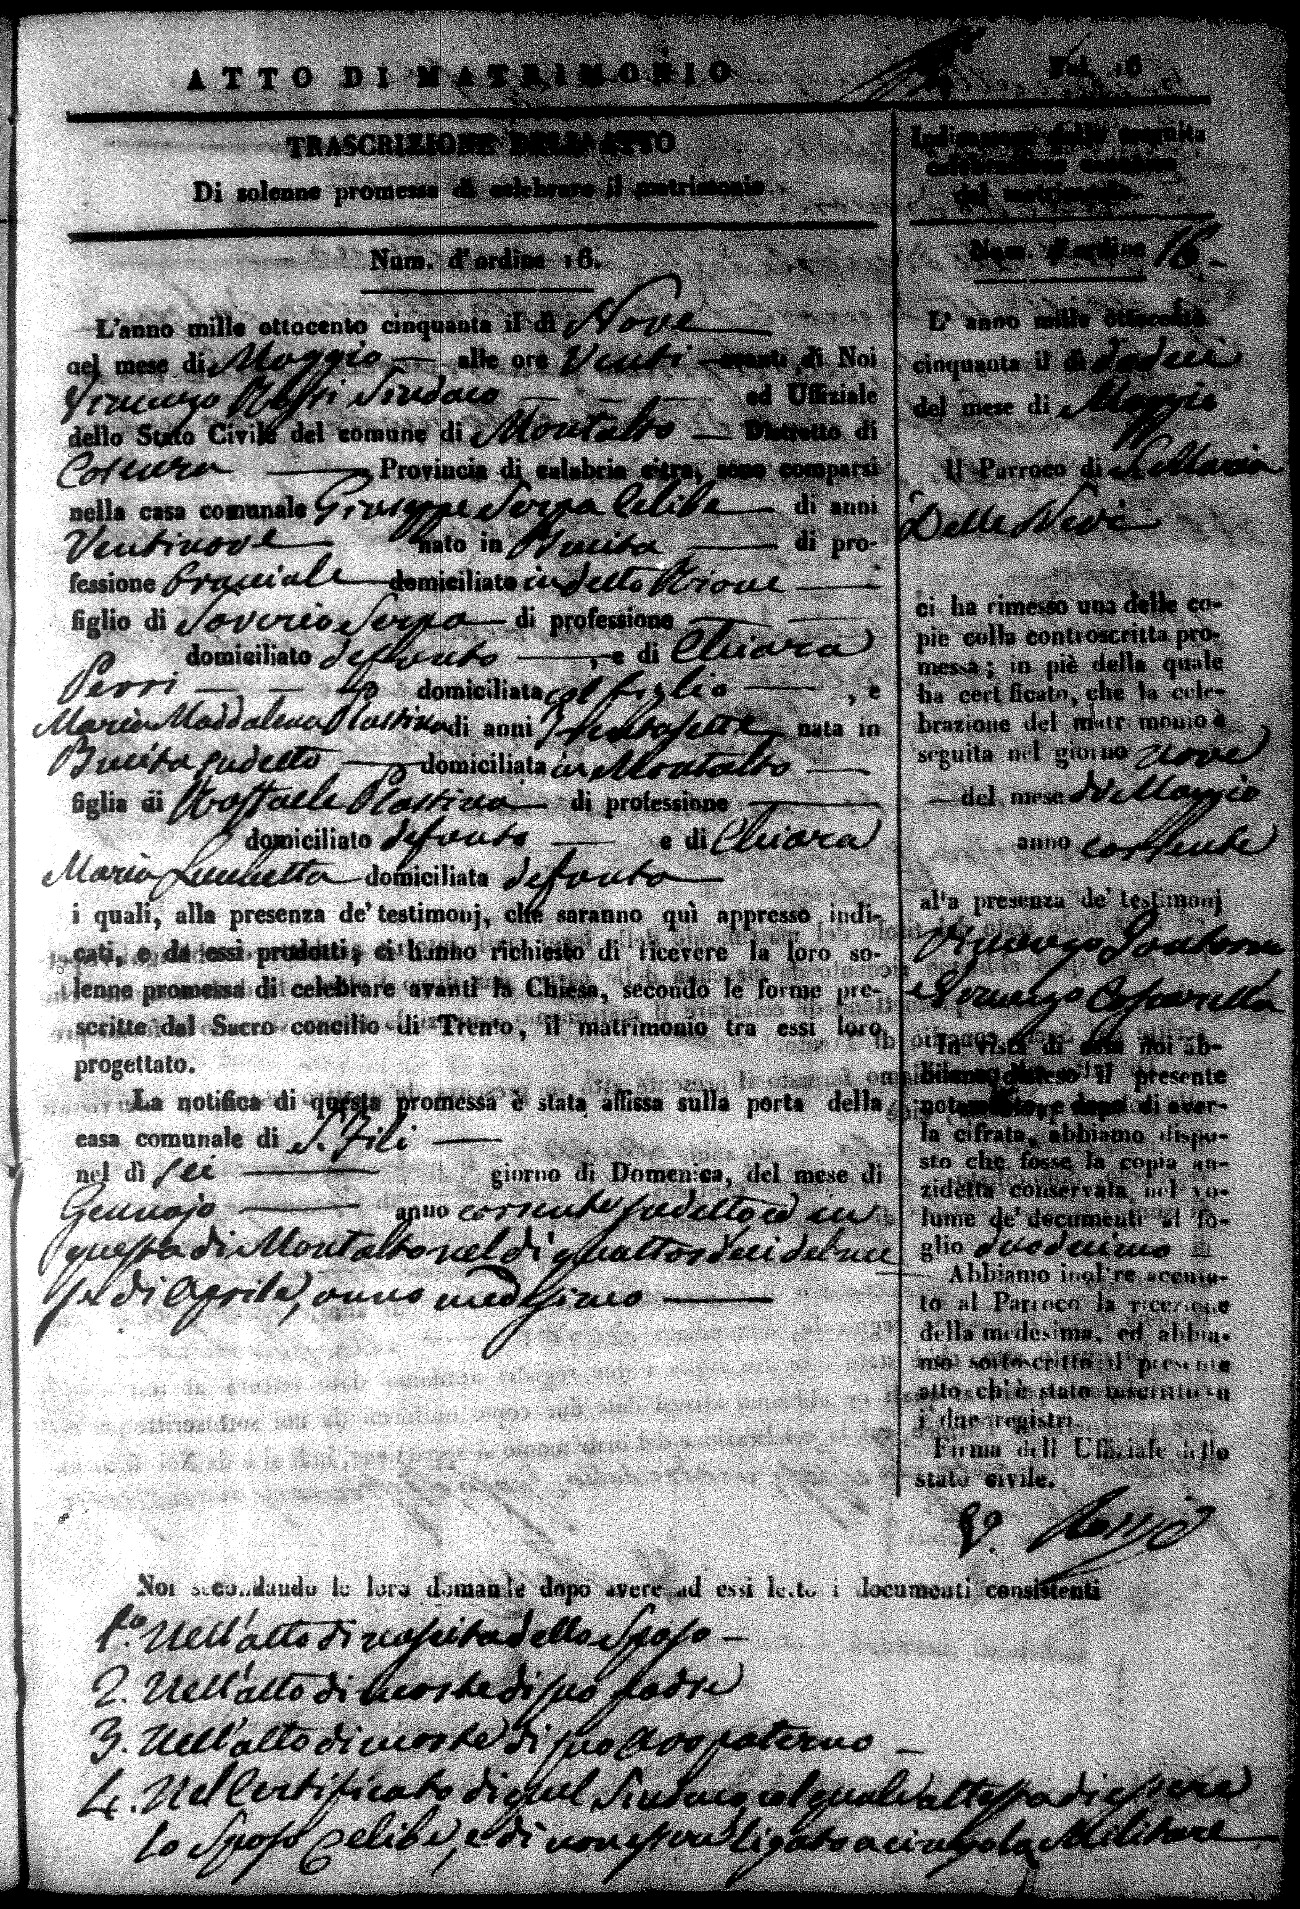 ATTO DI MATRIMONIO
Fol. 16
TRASCRIZIONE DELL'ATTO
Di solenne promessa di celebrare il matrimonio
Num. d'ordine 16.
L'anno mille ottocento cinquanta il dì Nove
nel mese di Maggio alle ore Venti avanti di Noi
Vincenzo Rossi Sindaco ed Uffiziale
dello Stato Civile del comune di Montalto Distretto di
Cosenza Provincia di calabria citra, sono comparsi
nella casa comunale Giuseppe Serpa Celibe di anni
Ventinove nato in Bucita di pro-
fessione Bracciale domiciliato in detto Rione
figlio di Saverio Serpa di professione
domiciliato defonto , e di Chiara
Perri domiciliata col figlio , e
Maria Maddalena Plastina di anni Trentasette nata in
Bucita sudetto domiciliata in Montalto
figlia di Raffaele Plastina di professione
domiciliato defonto e di Chiara
Maria Luchetta domiciliata defonta
i quali, alla presenza de' testimonj, che saranno quì appresso indi-
cati, e da essi prodotti, ci hanno richiesto di ricevere la loro so-
lenne promessa di celebrare avanti la Chiesa, secondo le forme pre-
scritte dal Sacro concilio di Trento, il matrimonio tra essi loro
progettato.
La notifica di questa promessa è stata affissa sulla porta della
casa comunale di S. Fili
nel dì sei giorno di Domenica, del mese di
Gennajo anno corrente sudetto ed in
questa di Montalto nel dì quattordeci del me
se di Aprile, anno medesimo
Indicazione della seguita
celebrazione canonica
del matrimonio.
Num. d'ordine 16.
L' anno mille ottocento
cinquanta il dì dodeci
del mese di Maggio
Il Parroco di S. Maria
Delle Nevi
ci ha rimesso una delle co-
pie colla controscritta pro-
messa; in piè della quale
ha certificato, che la cele-
brazione del matrimonio è
seguita nel giorno nove
del mese di Maggio
anno corrente
alla presenza de' testimonj
Vincenzo
e Vincenzo
In vista di essa noi ab-
biamo disteso il presente
notamento, e dopo di aver-
la cifrata, abbiamo dispo-
sto che fosse la copia an-
zidetta conservata nel vo-
lume de' documenti al fo-
glio duodecimo
Abbiamo inoltre accusa-
to al Parroco la ricezione
della medesima, ed abbia-
mo sottoscritto il presente
atto chi è stato inscritto su
i due registri.
Firma dell' Uffiziale dello
stato civile.
V. Rossi
Noi secondando le loro domande dopo avere ad essi letto i documenti consistenti
1.º Nell'atto di nascita dello Sposo
2. Nell'atto di morte di suo padre
3. Nell'atto di morte di suo Avo paterno
4. Nel Certificato di quel Sindaco, col quale attesta di essere
lo Sposo Celibe, e di non essere ligato a cingola Militare